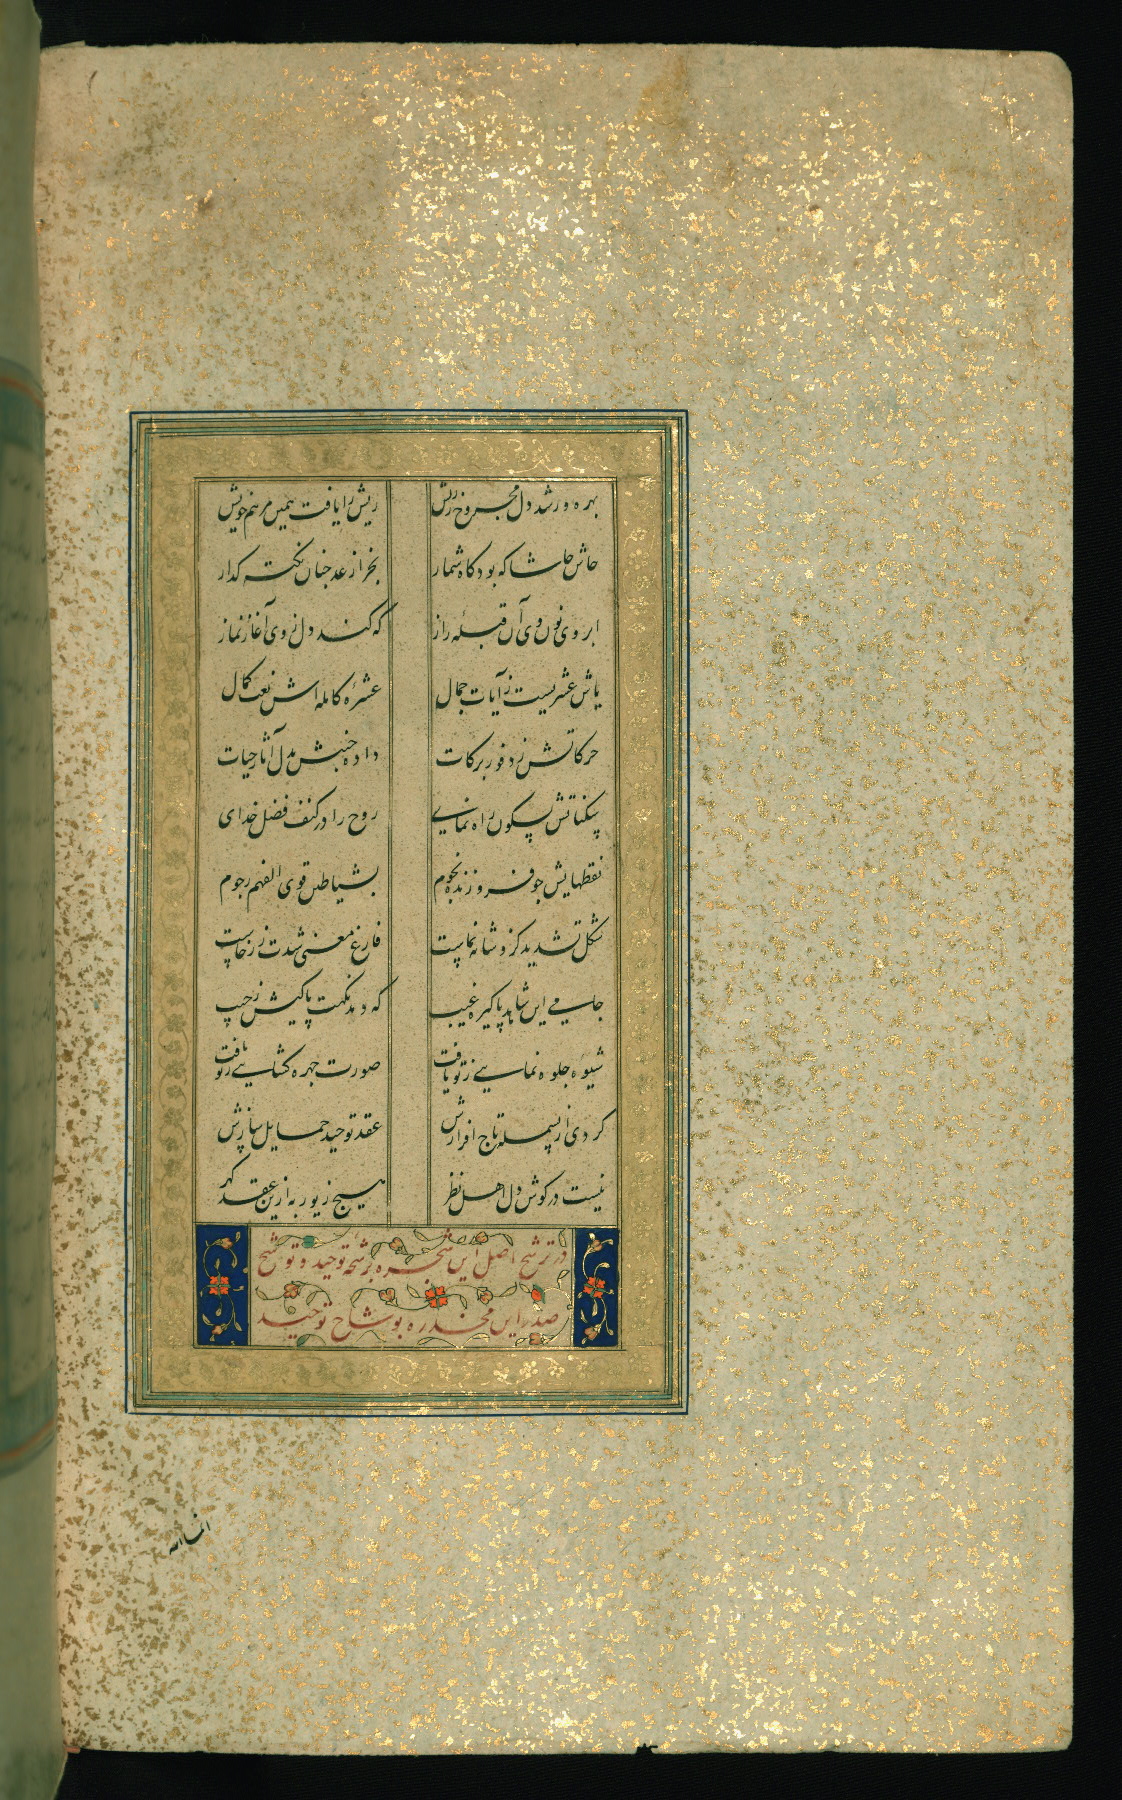 بهره ور شد دل مجروح زریش ریش را یافت همین مرهم خویش
حاش حاشا که بود کاه شمار بخر از عد جنان نکته کذار
ابروی نون وی آن قبلهٔ راز که کند دل ز وی آغاز نماز
یاش عشریست ز آیات جمال عشرهٔ کامله اش نعت کمال
حرکاتش ز وفور برکات داده جنبش بدل آثار حیات
سکناتش بسکون راه نمای روح را در کنف فضل خدای
نقطهایش جو فروزنده نجوم بشیاطین قوی الفهم رجوم
شکل تشدید کزو شانه نماست فارغ معنی شدت
جامی این شاهد پاکیزه غیب که دمد نکهت پاکیش ز جیب
شیوه جلوه نمایی ز تو یافت صورت جهره کشایی ز تو یافت
کردی از بسمله تاج افرازش عقد توحید حمایل سازش
نیست در کوش دل اهل نظر هیج زیور به ازین عقد کهر
در ترشیح اصل این شجره برشحه توحید و توشیح
صدر این مخدره بوشاح توحید
انما الله